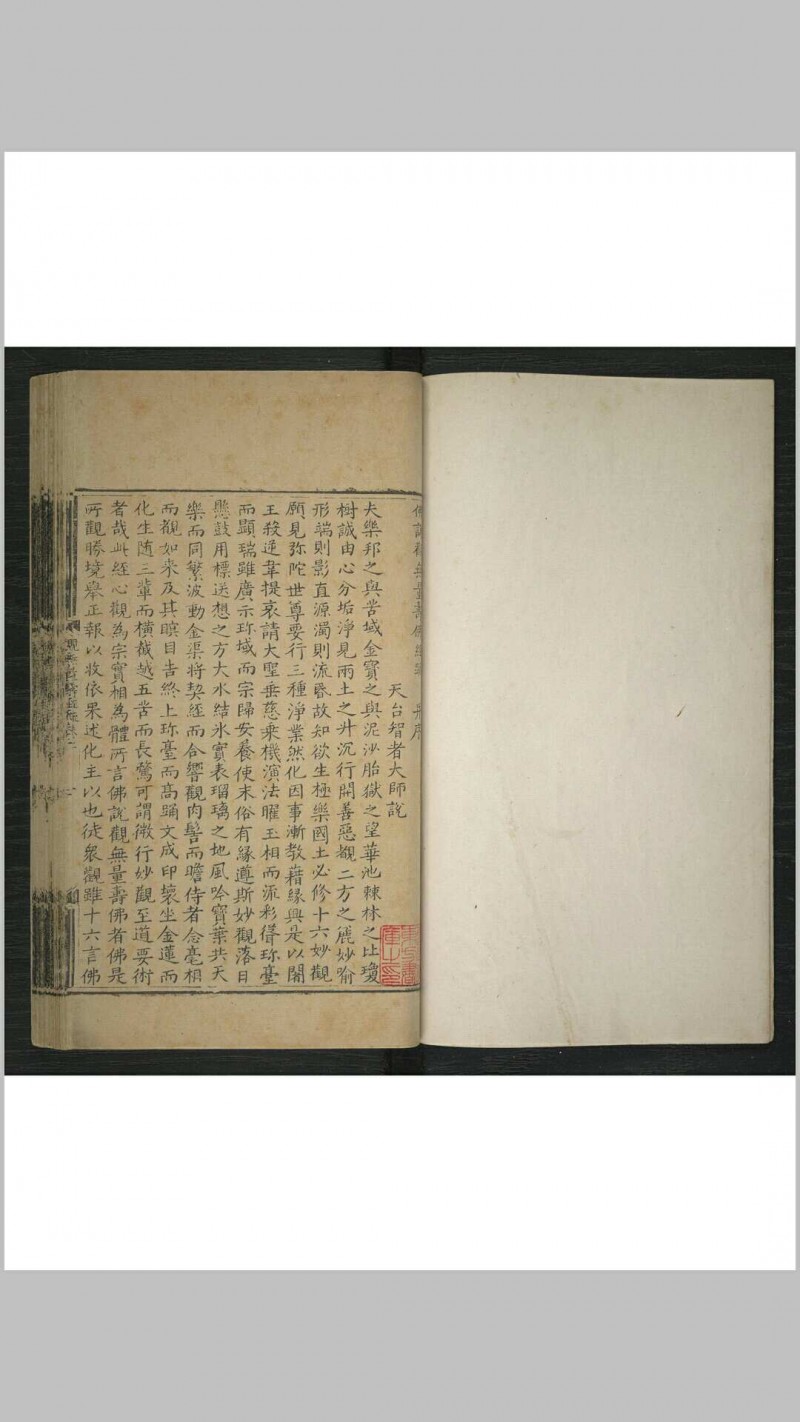 佛說觀無量壽佛經疏 并序
天台智者大師說
夫樂邦之與苦域金寶之與泥沙胎獄之望華池棘林之比瓊
樹誠由心分垢淨見兩土之升沉行開善惡覩二方之麁妙喻
形端則影直源濁則流昏故知欲生極樂國土必修十六妙觀
願見弥陀世尊要行三種淨業然化因事漸教藉緣興是以闍
王殺逆韋提哀請大聖垂慈乘機演法曜玉相而流彩聳珎臺
而顯瑞雖廣示珎域而宗歸安養使末俗有緣遵斯妙觀落日
懸鼓用標送想之方大水結氷實表瑠璃之地風吟寶葉共天
樂而同繁波動金渠將契經而合響觀肉髻而瞻侍者念毫相
而觀如来及其瞑目告終上珎臺而高踊文成印壞坐金蓮而
化生随三輩而橫截越五苦而長騖可謂微行妙觀至道要術
者哉此經心觀為宗實相為體所言佛說觀無量壽佛者佛是
所觀勝境舉正報以收依果述化主以包徒衆觀雖十六言佛